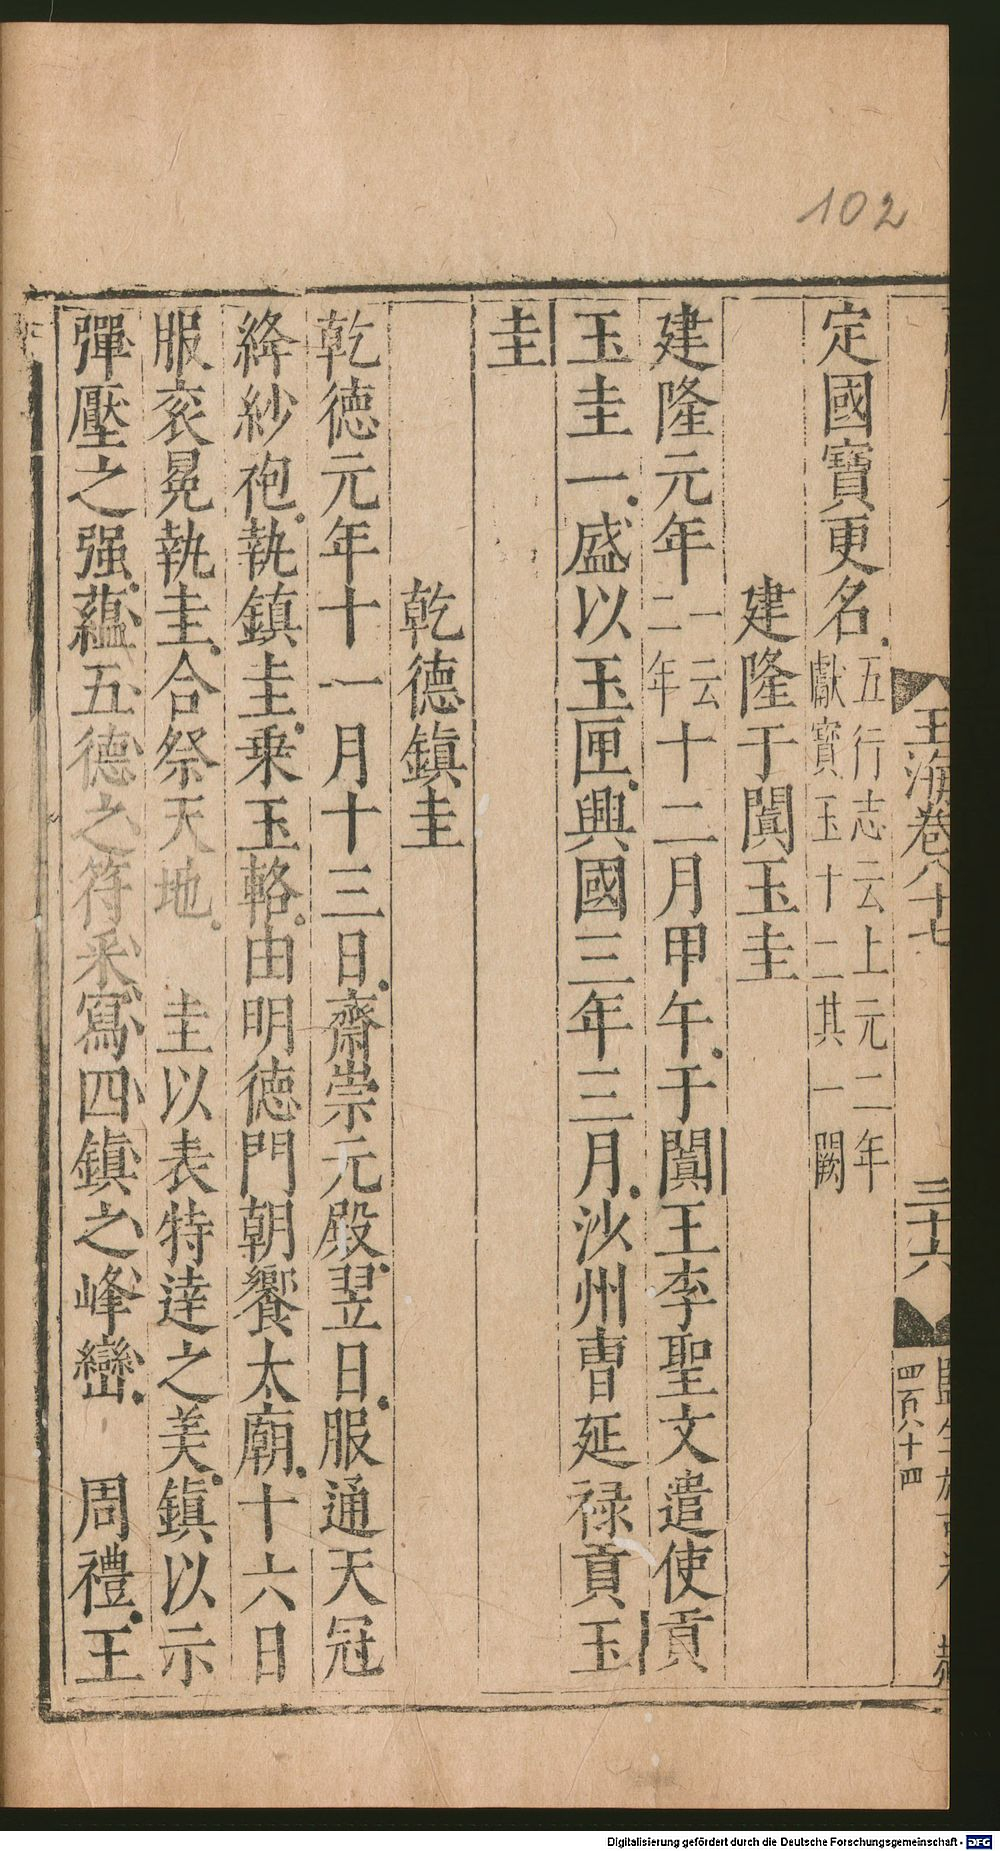 102
玉海卷八十七
三十六
四百八十四
定國寶更名五行志云上元二年
獻寶玉十二其一闕
建隆于闐玉圭
建隆元年一云
二年十二月甲午于闐王李聖文遣使貢
玉圭一盛以玉匣興國三年三月沙州曹延祿貢玉
圭
乾德鎮圭
乾德元年十一月十三日齋崇元殿翌日服通天冠
絳紗袍執鎮圭乗玉輅由明德門朝饗太廟十六日
服衮冕執圭合祭天地 圭以表特達之美鎮以示
彈壓之强蘊五德之符采寫四鎮之峰巒 周禮王
Digitalisierung gefördert durch die Deutsche Forschungsgemeinschaft - DFG